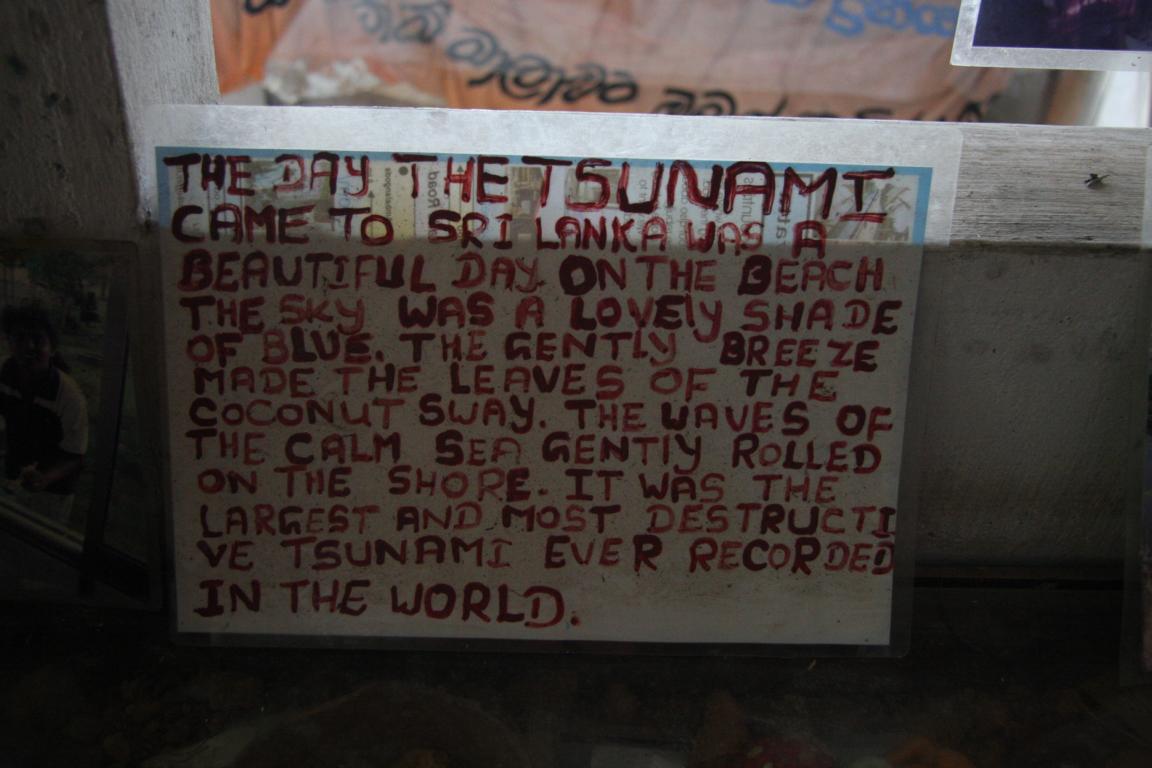 THE DAY THE TSUNAMI
CAME TO SRI LANKA WAS A
BEAUTIFUL DAY ON THE BEACH
THE SKY WAS A LOVELY SHADE
OF BLUE. THE GENTLY BREEZE
MADE THE LEAVES OF THE
COCONUT SWAY. THE WAVES OF
THE CALM SEA GENTLY ROLLED
ON THE SHORE. IT WAS THE
LARGEST AND MOST DESTRUCTI
VE TSUNAMI EVER RECORDED
IN THE WORLD.